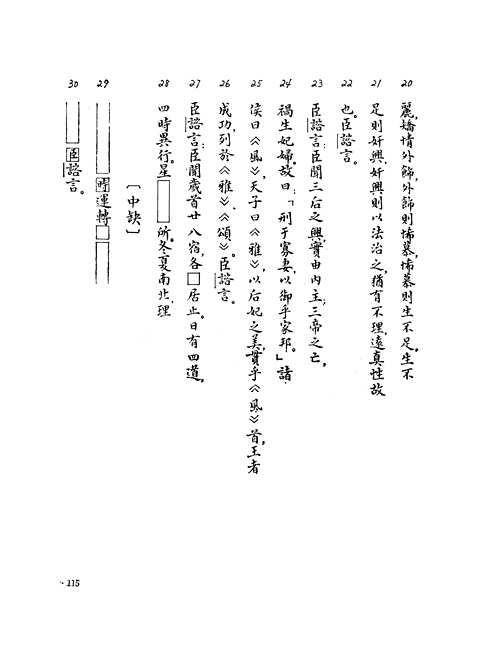 20 麗，矯情外飾，外飾則悕慕，悕慕則生不足。生不
21 足則奸興，奸興則以法治之，猶有不理，遠真性故
22 也。臣諮言。
23 臣諮言：臣聞三后之興，實由內主；三帝之亡，
24 禍生妃婦。故曰：「刑于寡妻，以御乎家邦。」諸
25 侯曰《風》，天子曰《雅》，以后妃之美，貫乎《風》首，王者
26 成功，列於《雅》、《頌》。臣諮言。
27 臣諮言：臣聞歲首廿八宿，各□居止。日有四道，
28 四時異行。星□所。冬夏南北，理
〔中缺〕
29 □時運轉□□
30 □臣諮言。
115